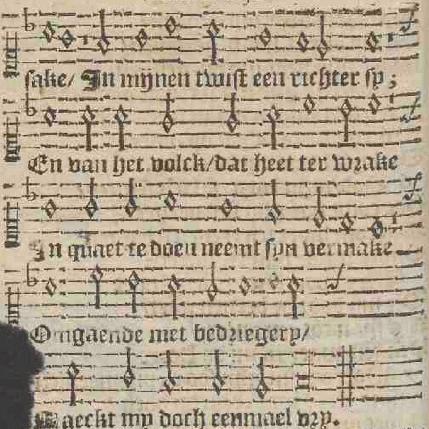 sake/ In mijnen twist een richter sy;
En van het volck/dat heet ter wrake
In quaet te doen neemt syn vermake
Omgaende met bedriegery/
Maeckt my doch eenmael vry.